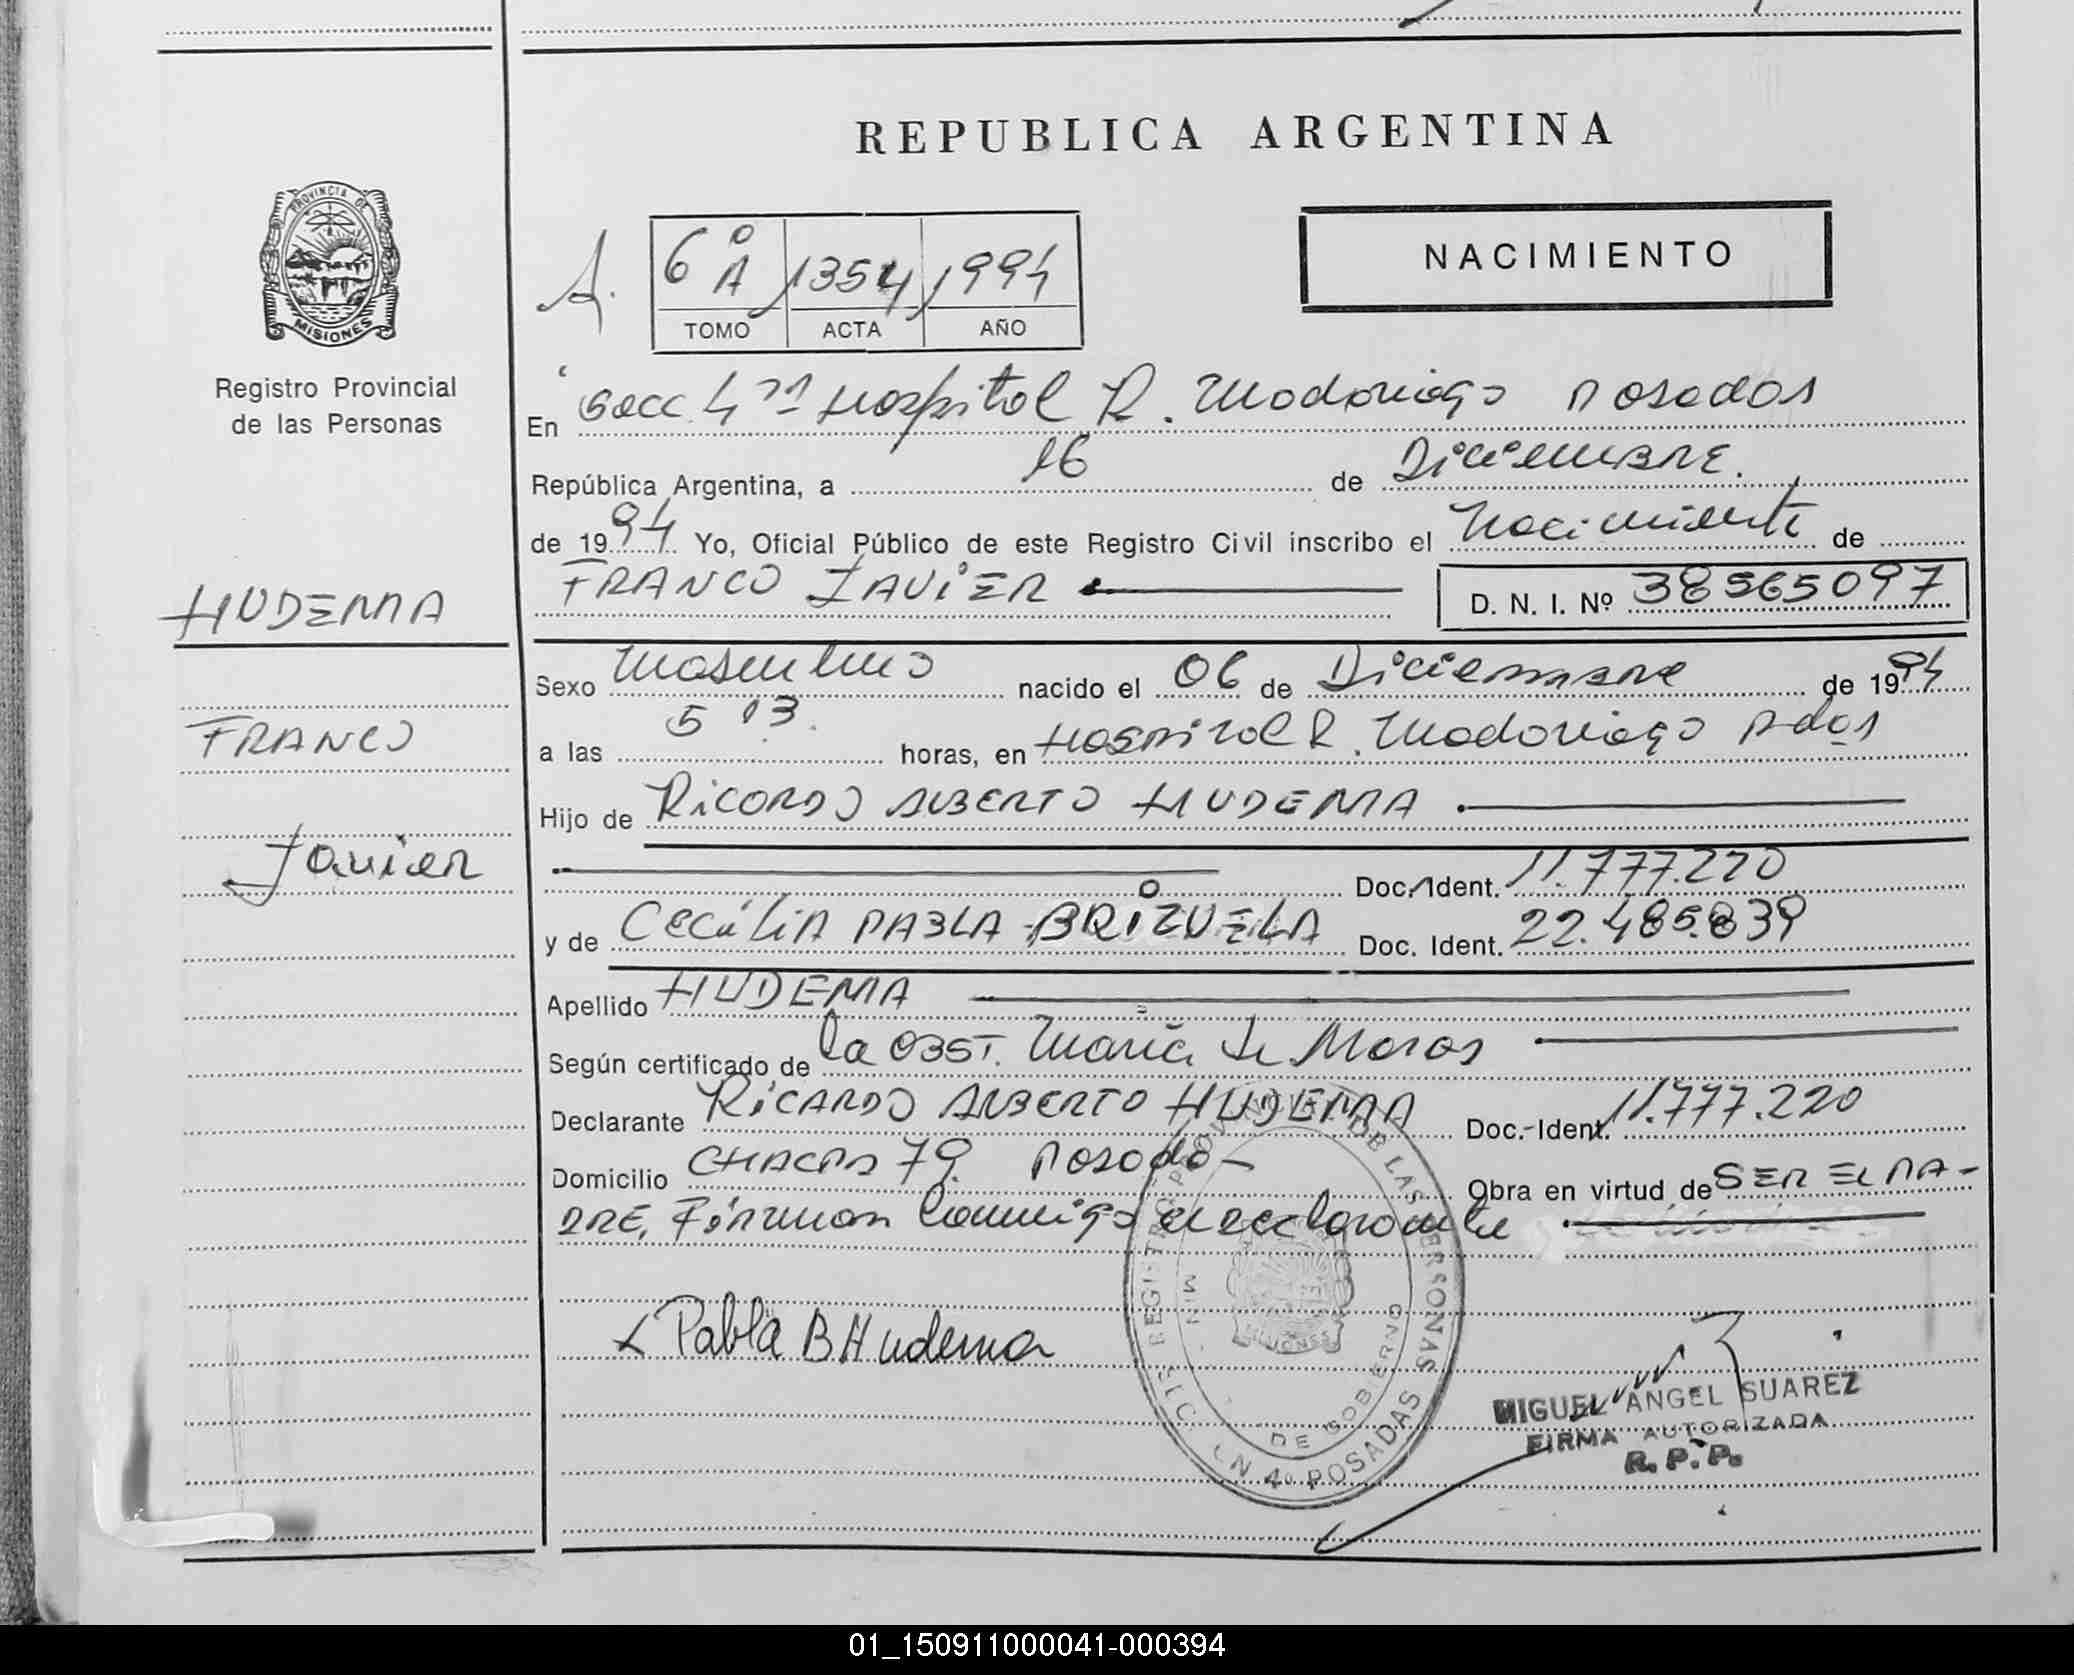 REPUBLICA ARGENTINA
PROVINCIA DE
MISIONES
Registro Provincial
de las Personas
A.
6º A 1354 1994
TOMO ACTA AÑO
NACIMIENTO
En Secc 4ª Hospital R. Madariaga Posadas
República Argentina, a 16 de Diciembre.
de 1994 Yo, Oficial Público de este Registro Civil inscribo el Nacimiento de
FRANCO JAVIER D. N. I. Nº 38565097
HUDEMA
FRANCO
Javier
Sexo Masculino nacido el 06 de Diciembre de 1994
a las 5 13. horas, en Hospital R. Madariaga Pdas
Hijo de RICARDO ALBERTO HUDEMA
Doc. Ident. 11.777.220
y de CECILIA PABLA BRIZUELA Doc. Ident. 22.485.839
Apellido HUDEMA
Según certificado de la OBST. Maria de Moras
Declarante RICARDO ALBERTO HUDEMA Doc.-Ident. 11.777.220
Domicilio CHACRA 79. Posadas
Obra en virtud de SER EL PA-
DRE, Firman Conmigo el declarante
Pabla B Hudema
REGISTRO PROVINCIAL DE LAS PERSONAS
MIN. DE GOBIERNO
SECCION 4º POSADAS
MISIONES
MIGUEL ANGEL SUAREZ
FIRMA AUTORIZADA
R. P. P.
01_150911000041-000394